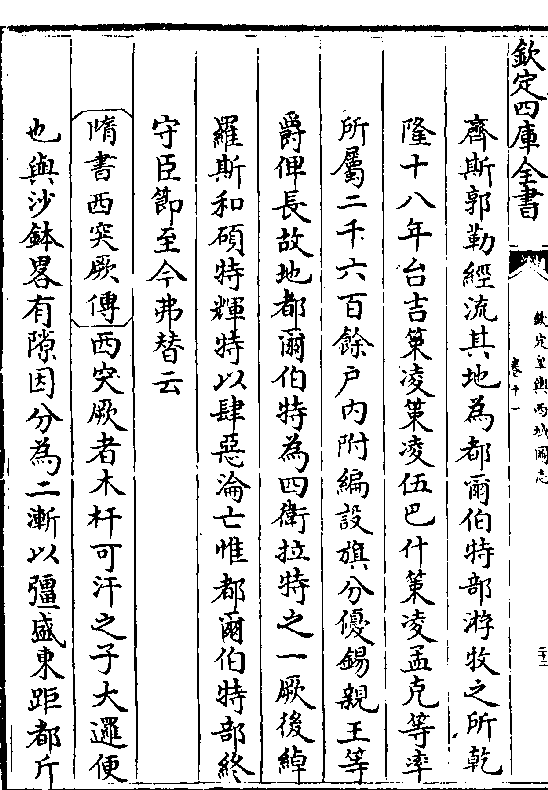 欽定四庫全書
欽定皇輿西域圖志
卷十一
二十二
齊斯郭勒經流其地為都爾伯特部游牧之所乾
隆十八年台吉策凌策凌伍巴什策凌孟克等率
所屬二千六百餘户内附編設旗分優錫親王等
爵俾長故地都爾伯特為四衛拉特之一厥後綽
羅斯和碩特輝特以肆惡淪亡惟都爾伯特部終
守臣節至今弗替云
隋書西突厥傳西突厥者木杆可汗之子大邏便
也與沙鉢畧有隙因分為二漸以彊盛東距都斤